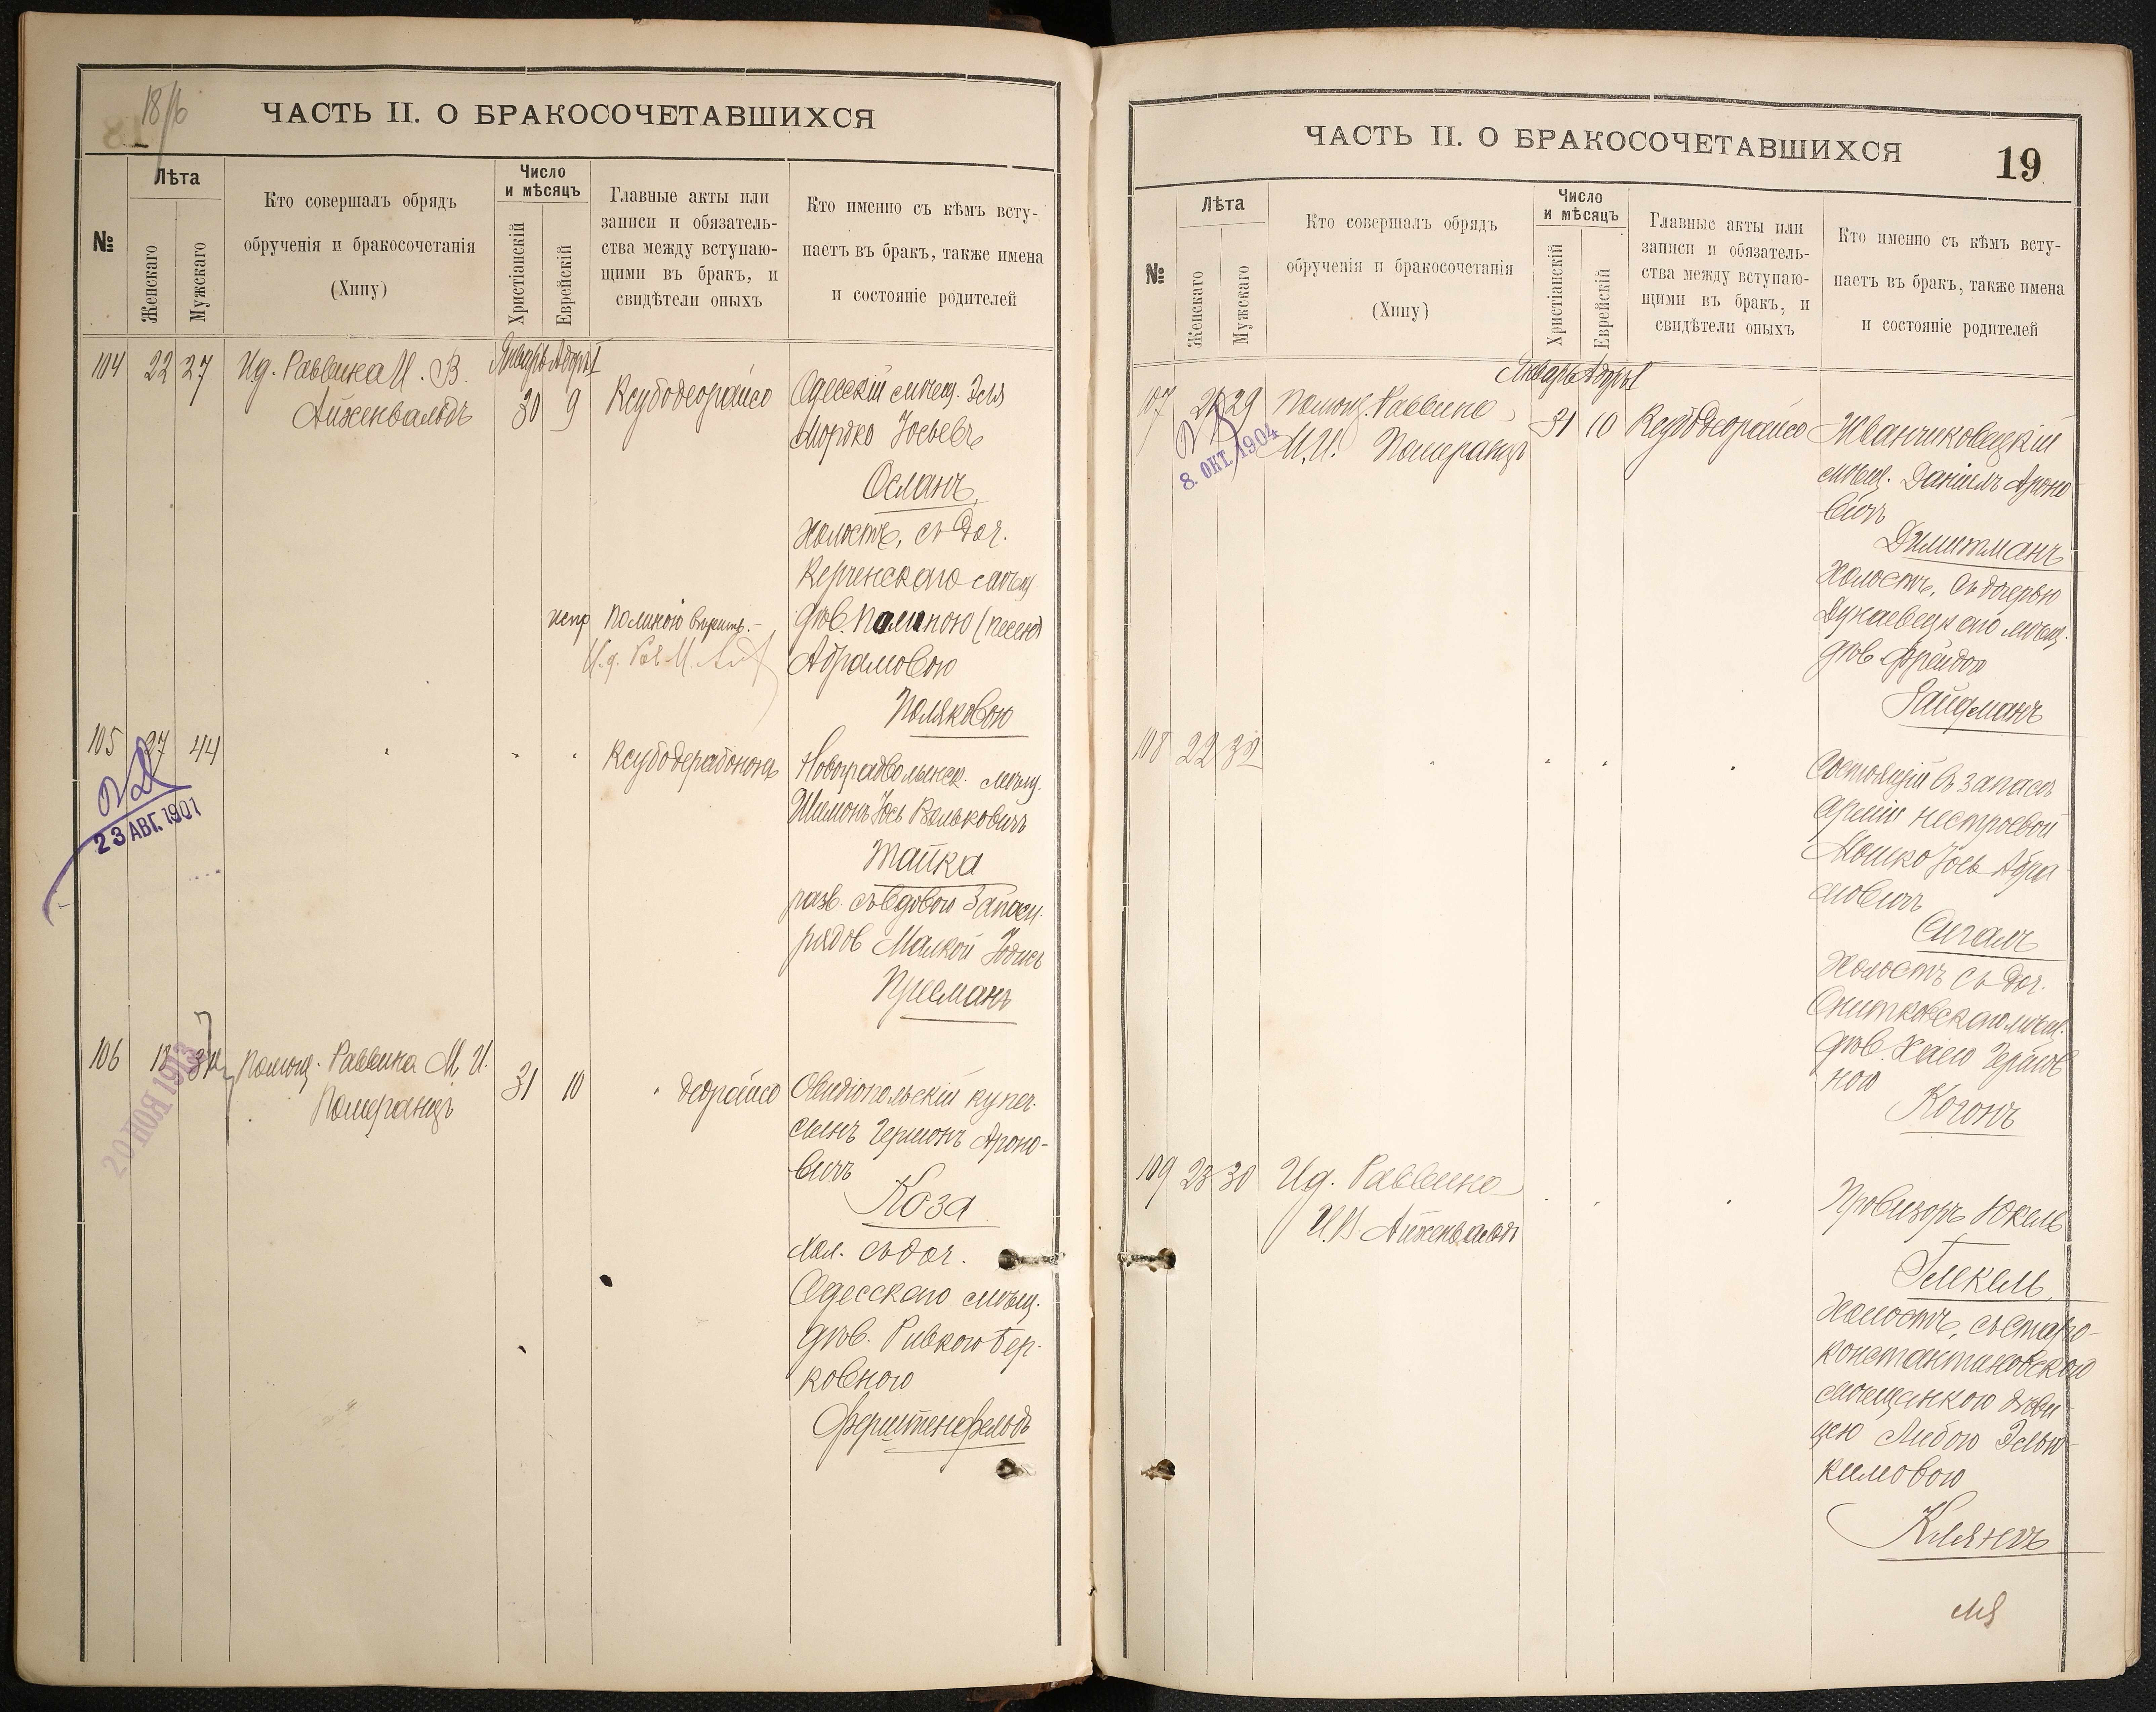 18/16
ЧАСТЬ II. О БРАКОСОЧЕТАВШИХСЯ
№
Лѣта
Женскаго
Мужскаго
Кто совершалъ обрядъ
обрученія и бракосочетанія
(Хипу)
Число
и мѣсяцъ
Христіанскій
Еврейскій
Главные акты или
записи и обязатель-
ства между вступаю-
щими въ бракъ, и
свидѣтели оныхъ
Кто именно съ кѣмъ всту-
паетъ въ бракъ, также имена
и состояніе родителей
104 22 27 Ид. Раввина И. В.
Айженвальдъ
Январь Адаръ I
30 9
Ксубодеорайсо
Одесскій мѣщ. Эля
Мордко Іосьевъ
Осланъ,
холостъ, съ доч.
Керченскаго мѣщ.
дѣв. Полиною (песею)
Абрамовою
Поляковою
испр Полиною вѣрить.-
И.д. Рав. И.
105 27 44
23 АВГ. 1901
Ксубодерабононъ
Новоградволынск. мѣщ.
Шимонъ Іось Вольковичъ
Тайка
разв. съ вдовою Запасн.
рядов Малкой Юдись
Присманъ
106 18 34
20 НОЯ 1913
Помощ. Раввина М. И.
Померанцъ
31 10
" деорайсо
Овидіопольскій купеч.
сынъ Германъ Ароно-
вичъ
Коза
хол. съ доч.
Одесскаго мѣщ.
дѣв. Ривкою Бер-
ковною
Ферштенфельдъ
ЧАСТЬ II. О БРАКОСОЧЕТАВШИХСЯ
19
№
Лѣта
Женскаго
Мужскаго
Кто совершалъ обрядъ
обрученія и бракосочетанія
(Хипу)
Число
и мѣсяцъ
Христіанскій
Еврейскій
Главные акты или
записи и обязатель-
ства между вступаю-
щими въ бракъ, и
свидѣтели оныхъ
Кто именно съ кѣмъ всту-
паетъ въ бракъ, также имена
и состояніе родителей
107 21 29
8. ОКТ. 1904
Помощ. Раввина
М. И. Померанцъ
Январь Адаръ I
31 10
Ксубодеорайсо
Жванчиковецкій
мѣщ. Даніилъ Ароно
вичъ
Дилитманъ
холостъ, съ дочерью
Дунаевецкаго мѣщ.
дѣв Фрейдою
Зайдманъ
108 22 32
Состоящій въ запасѣ
арміи нестроевой
Мошко Іось Абра
мовичъ
Сигалъ
холостъ съ доч.
Снитковскаго мѣщ.
дѣв. Хаею Гершов
ною
Когонъ
109 23 30 Ид. Раввина
И. В. Айженвальдъ
Провизоръ Юкель
Глекель,
холостъ, съ старо-
константиновской
мѣщанкою дѣви
цею Либою Элью-
кимовою
Клянеъ